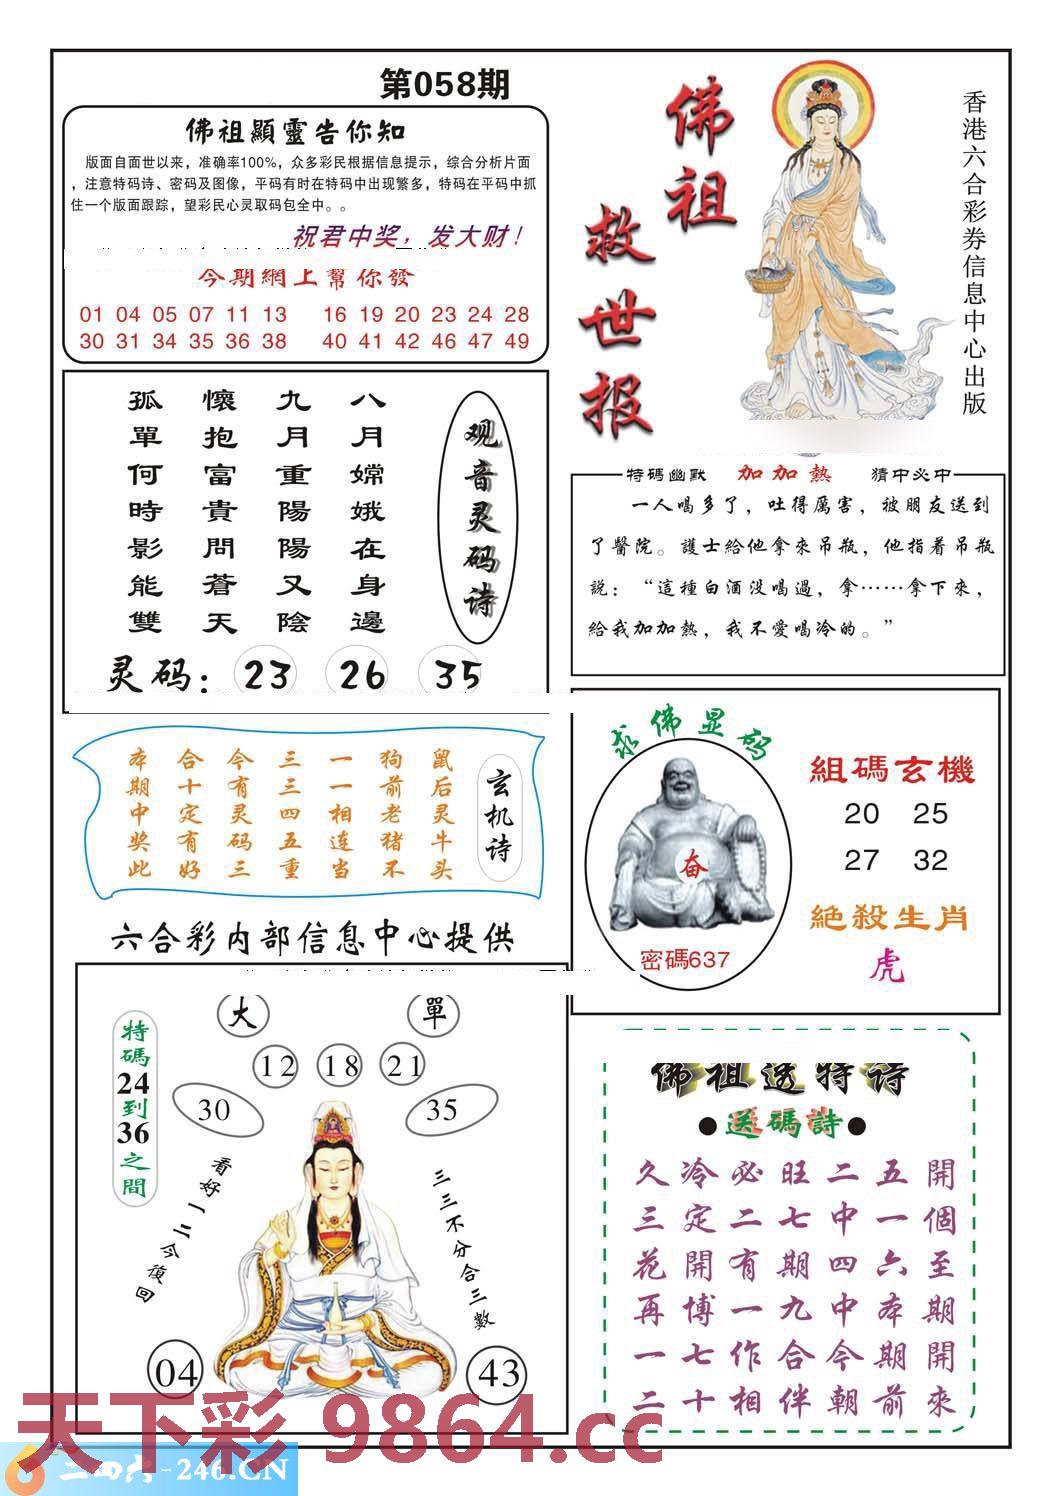 第058期
佛祖顯靈告你知
版面自面世以来，准确率100%，众多彩民根据信息提示，综合分析片面
，注意特码诗、密码及图像，平码有时在特码中出现繁多，特码在平码中抓
住一个版面跟踪，望彩民心灵取码包全中。。
祝君中奖，发大财！
今期網上幫你發
01 04 05 07 11 13 16 19 20 23 24 28
30 31 34 35 36 38 40 41 42 46 47 49
佛祖
救世报
香港六合彩券信息中心出版
观音灵码诗
八月嫦娥在身邊
九月重陽陽又陰
懷抱富貴問蒼天
孤單何時影能雙
灵码： 23 26 35
特碼幽默 加加熱 猜中必中
一人喝多了，吐得厲害，被朋友送到
了醫院。護士給他拿來吊瓶，他指着吊瓶
説：“這種白酒没喝過，拿……拿下來，
給我加加熱，我不愛喝冷的。”
玄机诗
鼠后灵牛头
狗前老猪不
一一相连当
三三四五重
今有灵码三
合十定有好
本期中奖此
求佛显码
奋
密碼637
組碼玄機
20 25
27 32
絶殺生肖
虎
六合彩内部信息中心提供
大 單
12 18 21
30 35
特碼24到36之間
看好一二今復回
三三不分合三數
04 43
佛祖透特诗
●送碼詩●
久冷必旺二五開
三定二七中一個
花開有期四六至
再博一九中本期
一七作合今期開
二十相伴朝前來
天下彩 9864.cc
二四六-246.CN